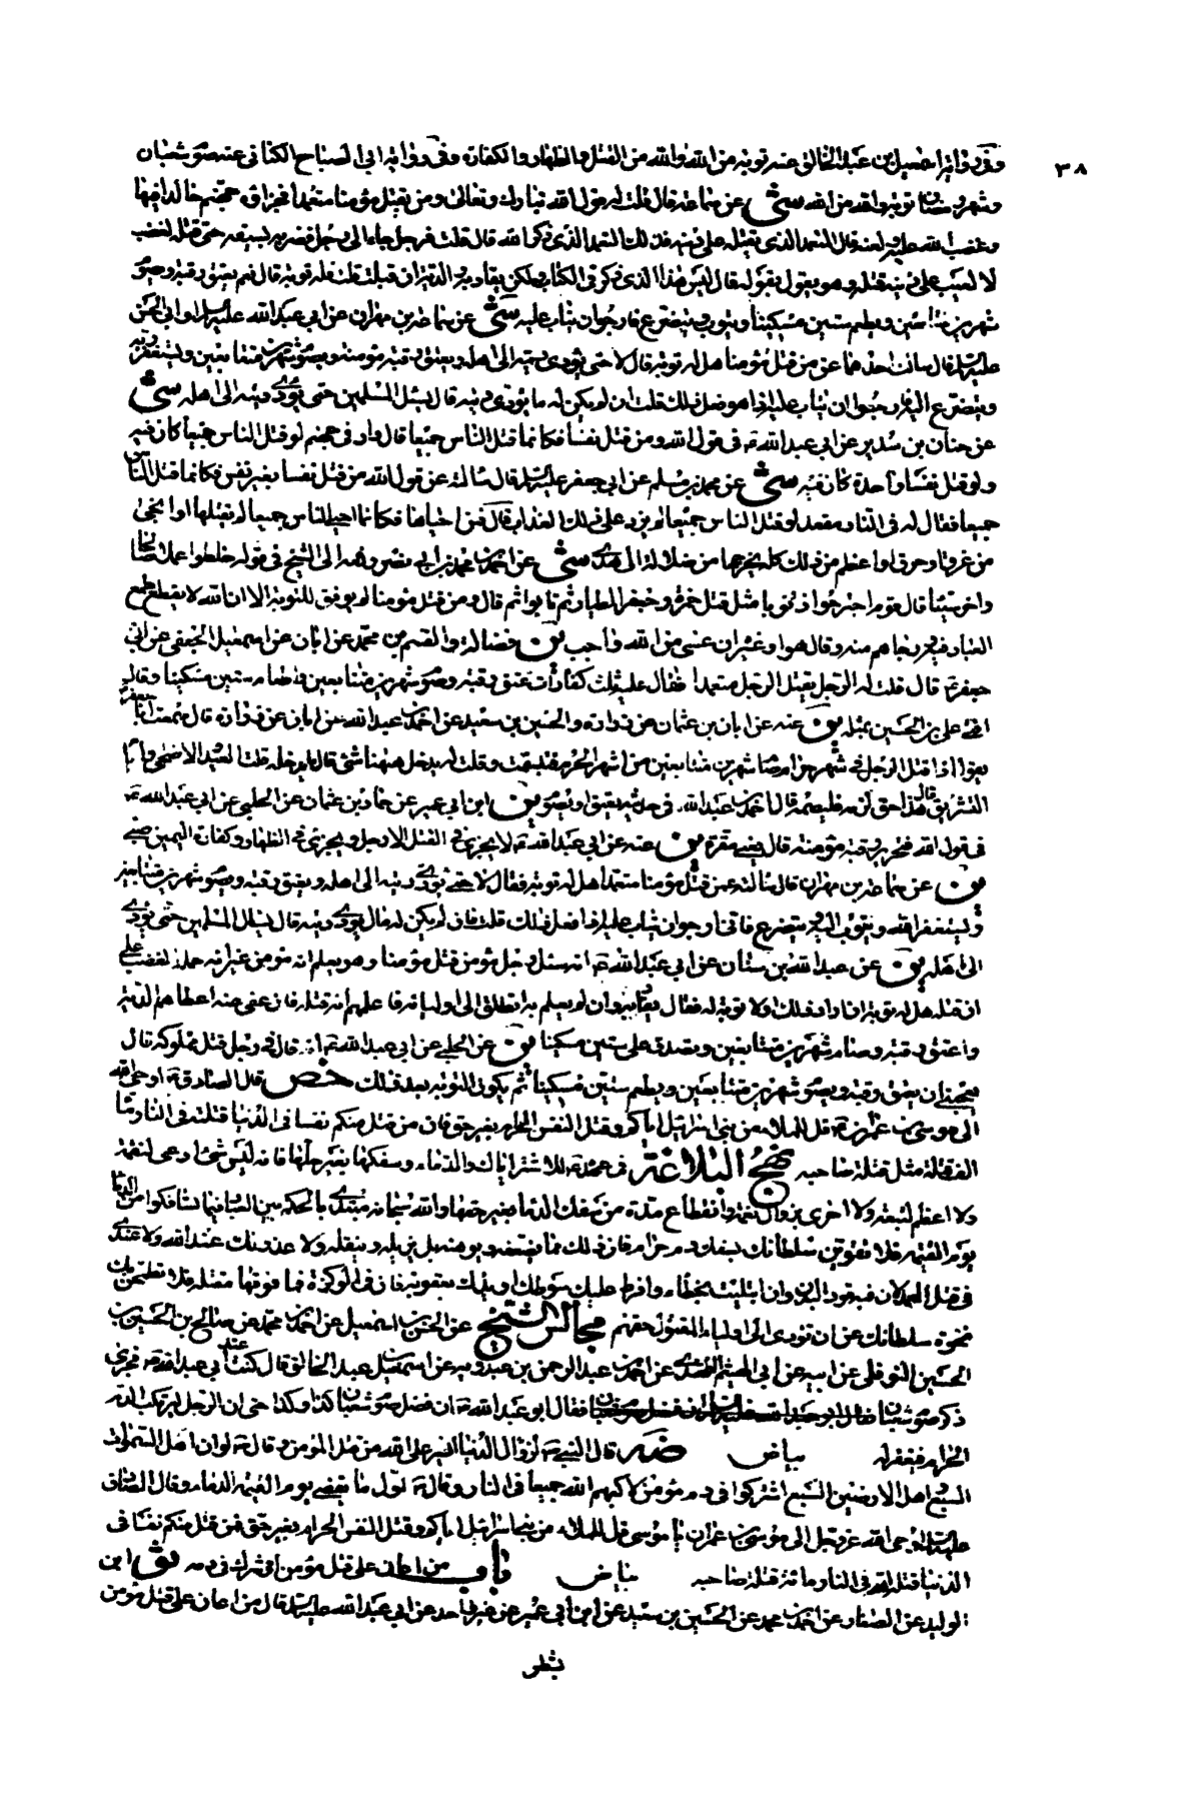 ٣٨
وفى رواية اسمعيل بن عبد الخالق عنه توبة من الله والله من القتل والظهار والكفارة وفى رواية ابى الصباح الكنانى عنه صوم شعبان
وشهر رمضان توبة والله من الله شى عن سماعة قال قلت له قول الله تبارك وتعالى ومن يقتل مؤمنا متعمدا فجزاؤه جهنم خالدا فيها
وغضب الله عليه ولعنه قال المتعمد الذى يقتله على دينه فذلك التعمد الذى ذكر الله قال قلت فرجل جاء الى رجل فضربه بسيفه حتى قتله لغضب
لا لعيب على دينه قتله وهو يقول بقوله قال ليس هذا الذى ذكر فى الكتاب ولكن يقاد به والدية ان قبلت قلت فله توبة قال نعم يعتق رقبة ويصوم
شهرين متتابعين ويطعم ستين مسكينا ويتوب ويتضرع فارجو ان يتاب عليه شى عن سماعة بن مهران عن ابى عبد الله عليه السلام او ابى الحسن
عليه السلام قال سالت احدهما عن من قتل مؤمنا هل له توبة قال لا حتى يؤدى ديته الى اهله ويعتق رقبة مؤمنة ويصوم شهرين متتابعين ويستغفر ربه
ويتضرع اليه فارجو ان يتاب عليه اذا هو فعل ذلك قلت ان لم يكن له ما يؤدى ديته قال يسئل المسلمين حتى يؤدى ديته الى اهله شى
عن حنان بن سدير عن ابى عبد الله ع فى قول الله ومن قتل نفسا فكانما قتل الناس جميعا قال واد فى جهنم لو قتل الناس جميعا كان فيه
ولو قتل نفسا واحدة كان فيه شى عن محمد بن مسلم عن ابى جعفر عليه السلام قال سالته عن قول الله من قتل نفسا بغير نفس فكانما قتل الناس
جميعا فقال له فى النار مقعد لو قتل الناس جميعا لم يزد على ذلك العذاب قال فمن احياها فكانما احيا الناس جميعا لم يقتلها او انجى
من غرق او حرق او اعظم من ذلك كله يخرجها من ضلالة الى هدى شى عن احمد بن محمد بن ابى نصر رفعه الى الشيخ فى قوله خلطوا عملا صالحا
واخر سيئا قال قوم اجترحوا ذنوبا مثل قتل حمزة وجعفر الطيار ثم تابوا ثم قال ومن قتل مؤمنا لم يوفق للتوبة الا ان الله لا يقطع طمع
العباد فيه ورجاهم منه وقال هو او غيره ان عسى من الله واجب ين فضالة والقسم بن محمد عن ابان عن اسمعيل الجعفى عن ابى
جعفر ع قال قلت له الرجل يقتل الرجل متعمدا فقال عليه ثلث كفارات عتق رقبة وصوم شهرين متتابعين واطعام ستين مسكينا وقال
افتى على بن الحسين بمثله ين عنه عن ابان بن عثمان عن زرارة والحسين بن سعيد عن احمد بن عبد الله عن ابان عن زرارة قال سمعت ابا جعفر
يقول اذا قتل الرجل فى شهر حرام صام شهرين متتابعين من اشهر الحرم فتبسمت وقلت له يدخل ههنا شئ قال ما يدخله قلت العيد الاضحى وايام
التشريق قال هذا حق لزمه فليصمه قال احمد بن عبد الله فى حديثه يعتق او يصوم ين ابن ابى عمير عن حماد بن عثمان عن الحلبى عن ابى عبد الله ع
فى قول الله فتحرير رقبة مؤمنة قال يعنى مقرة ين عنه عن ابى عبد الله ع لا يجزى فى القتل الا رجل ويجزى فى الظهار وكفارة اليمين صبى
ين عن سماعة بن مهران قال سالته عمن قتل مؤمنا متعمدا هل له توبة فقال لا حتى يؤدى ديته الى اهله ويعتق رقبة ويصوم شهرين متتابعين
ويستغفر الله ويتوب اليه ويتضرع فانى ارجو ان يتاب عليه اذا فعل ذلك قلت فان لم يكن له مال يؤدى ديته قال يسئل المسلمين حتى يؤدى
الى اهله ين عن عبد الله بن سنان عن ابى عبد الله ع انه سئل رجل مؤمن قتل مؤمنا وهو يعلم انه مؤمن غير انه حمله الغضب على
ان قتله هل له توبة اذا اراد ذلك او لا توبة له فقال يقاد به وان لم يعلم به انطلق الى اوليائه فاعلمهم انه قتله فان عفى عنه اعطاهم الدية
واعتق رقبة وصام شهرين متتابعين وتصدق على ستين مسكينا ين عن الحلبى عن ابى عبد الله ع انه قال فى رجل قتل مملوكه قال
يعجبنى ان يعتق رقبة ويصوم شهرين متتابعين ويطعم ستين مسكينا ثم يكون التوبة بعد ذلك ختص قال الصادق ع اوحى الله
الى موسى بن عمران ع قل للملاء من بنى اسرائيل اياكم وقتل النفس الحرام بغير حق فان من قتل منكم نفسا فى الدنيا قتلته فى النار مائة
الف قتلة مثل قتلة صاحبه نهج البلاغة فى عهده ع للاشتر اياك والدماء وسفكها بغير حلها فانه ليس شئ ادعى لنقمة
ولا اعظم لتبعة ولا احرى بزوال نعمة وانقطاع مدة من سفك الدماء بغير حقها والله سبحانه مبتدى بالحكم بين العباد فيما تسافكوا من الدماء
يوم القيمة فلا تقوين سلطانك بسفك دم حرام فان ذلك مما يضعفه ويوهنه بل يزيله وينقله ولا عذر لك عند الله ولا عندى
فى قتل العمد لان فيه قود البدن وان ابتليت بخطاء وافرط عليك سوطك او يدك بعقوبة فان فى الوكزة فما فوقها مقتلة فلا تطمحن بك
نخوة سلطانك عن ان تؤدى الى اولياء المقتول حقهم مجالس الشيخ عن الحسين بن اسمعيل عن احمد بن محمد عن صالح بن الحسين بن
الحسين النوفلى عن ابيه عن ابى الهيثم النهدى عن احمد بن عبد الرحمن بن عبد ربه عن اسمعيل بن عبد الخالق قال كنت عند ابى عبد الله ع فجرى
ذكر صوم شعبان فقال ابو عبد الله ع ان فضل صوم شعبان كذا وكذا حتى ان الرجل ليرتكب الدم
الحرام فيغفر له بياض ضه قال النبى ص لزوال الدنيا ايسر على الله من قتل المؤمن وقال ص لو ان اهل السموات
السبع واهل الارضين السبع اشتركوا فى دم مؤمن لاكبهم الله جميعا فى النار وقال ص اول ما يقضى يوم القيمة الدماء وقال الصادق
عليه السلام اوحى الله عز وجل الى موسى بن عمران يا موسى قل للملاء من بنى اسرائيل اياكم وقتل النفس الحرام بغير حق فمن قتل منكم نفسا فى
الدنيا قتله الله فى النار مائة قتلة صاحبه بياض باب من اعان على قتل مؤمن او شرك فى دمه ثو ابن
الوليد عن الصفار عن احمد بن محمد عن الحسين بن سعيد عن ابن ابى عمير عن غير واحد عن ابى عبد الله عليه السلام قال من اعان على قتل مؤمن
بشطر